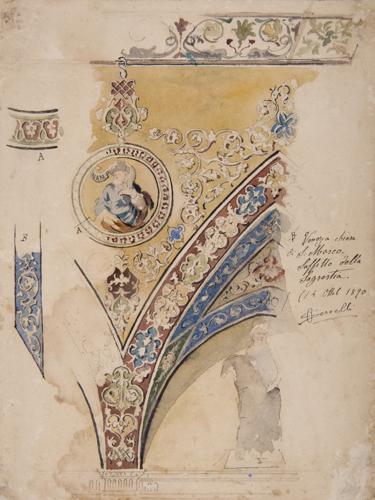 A
A
B
Venezia chiesa
di S. Marco,
Soffitto della
Sagrestia.
(14 Ott. 1890